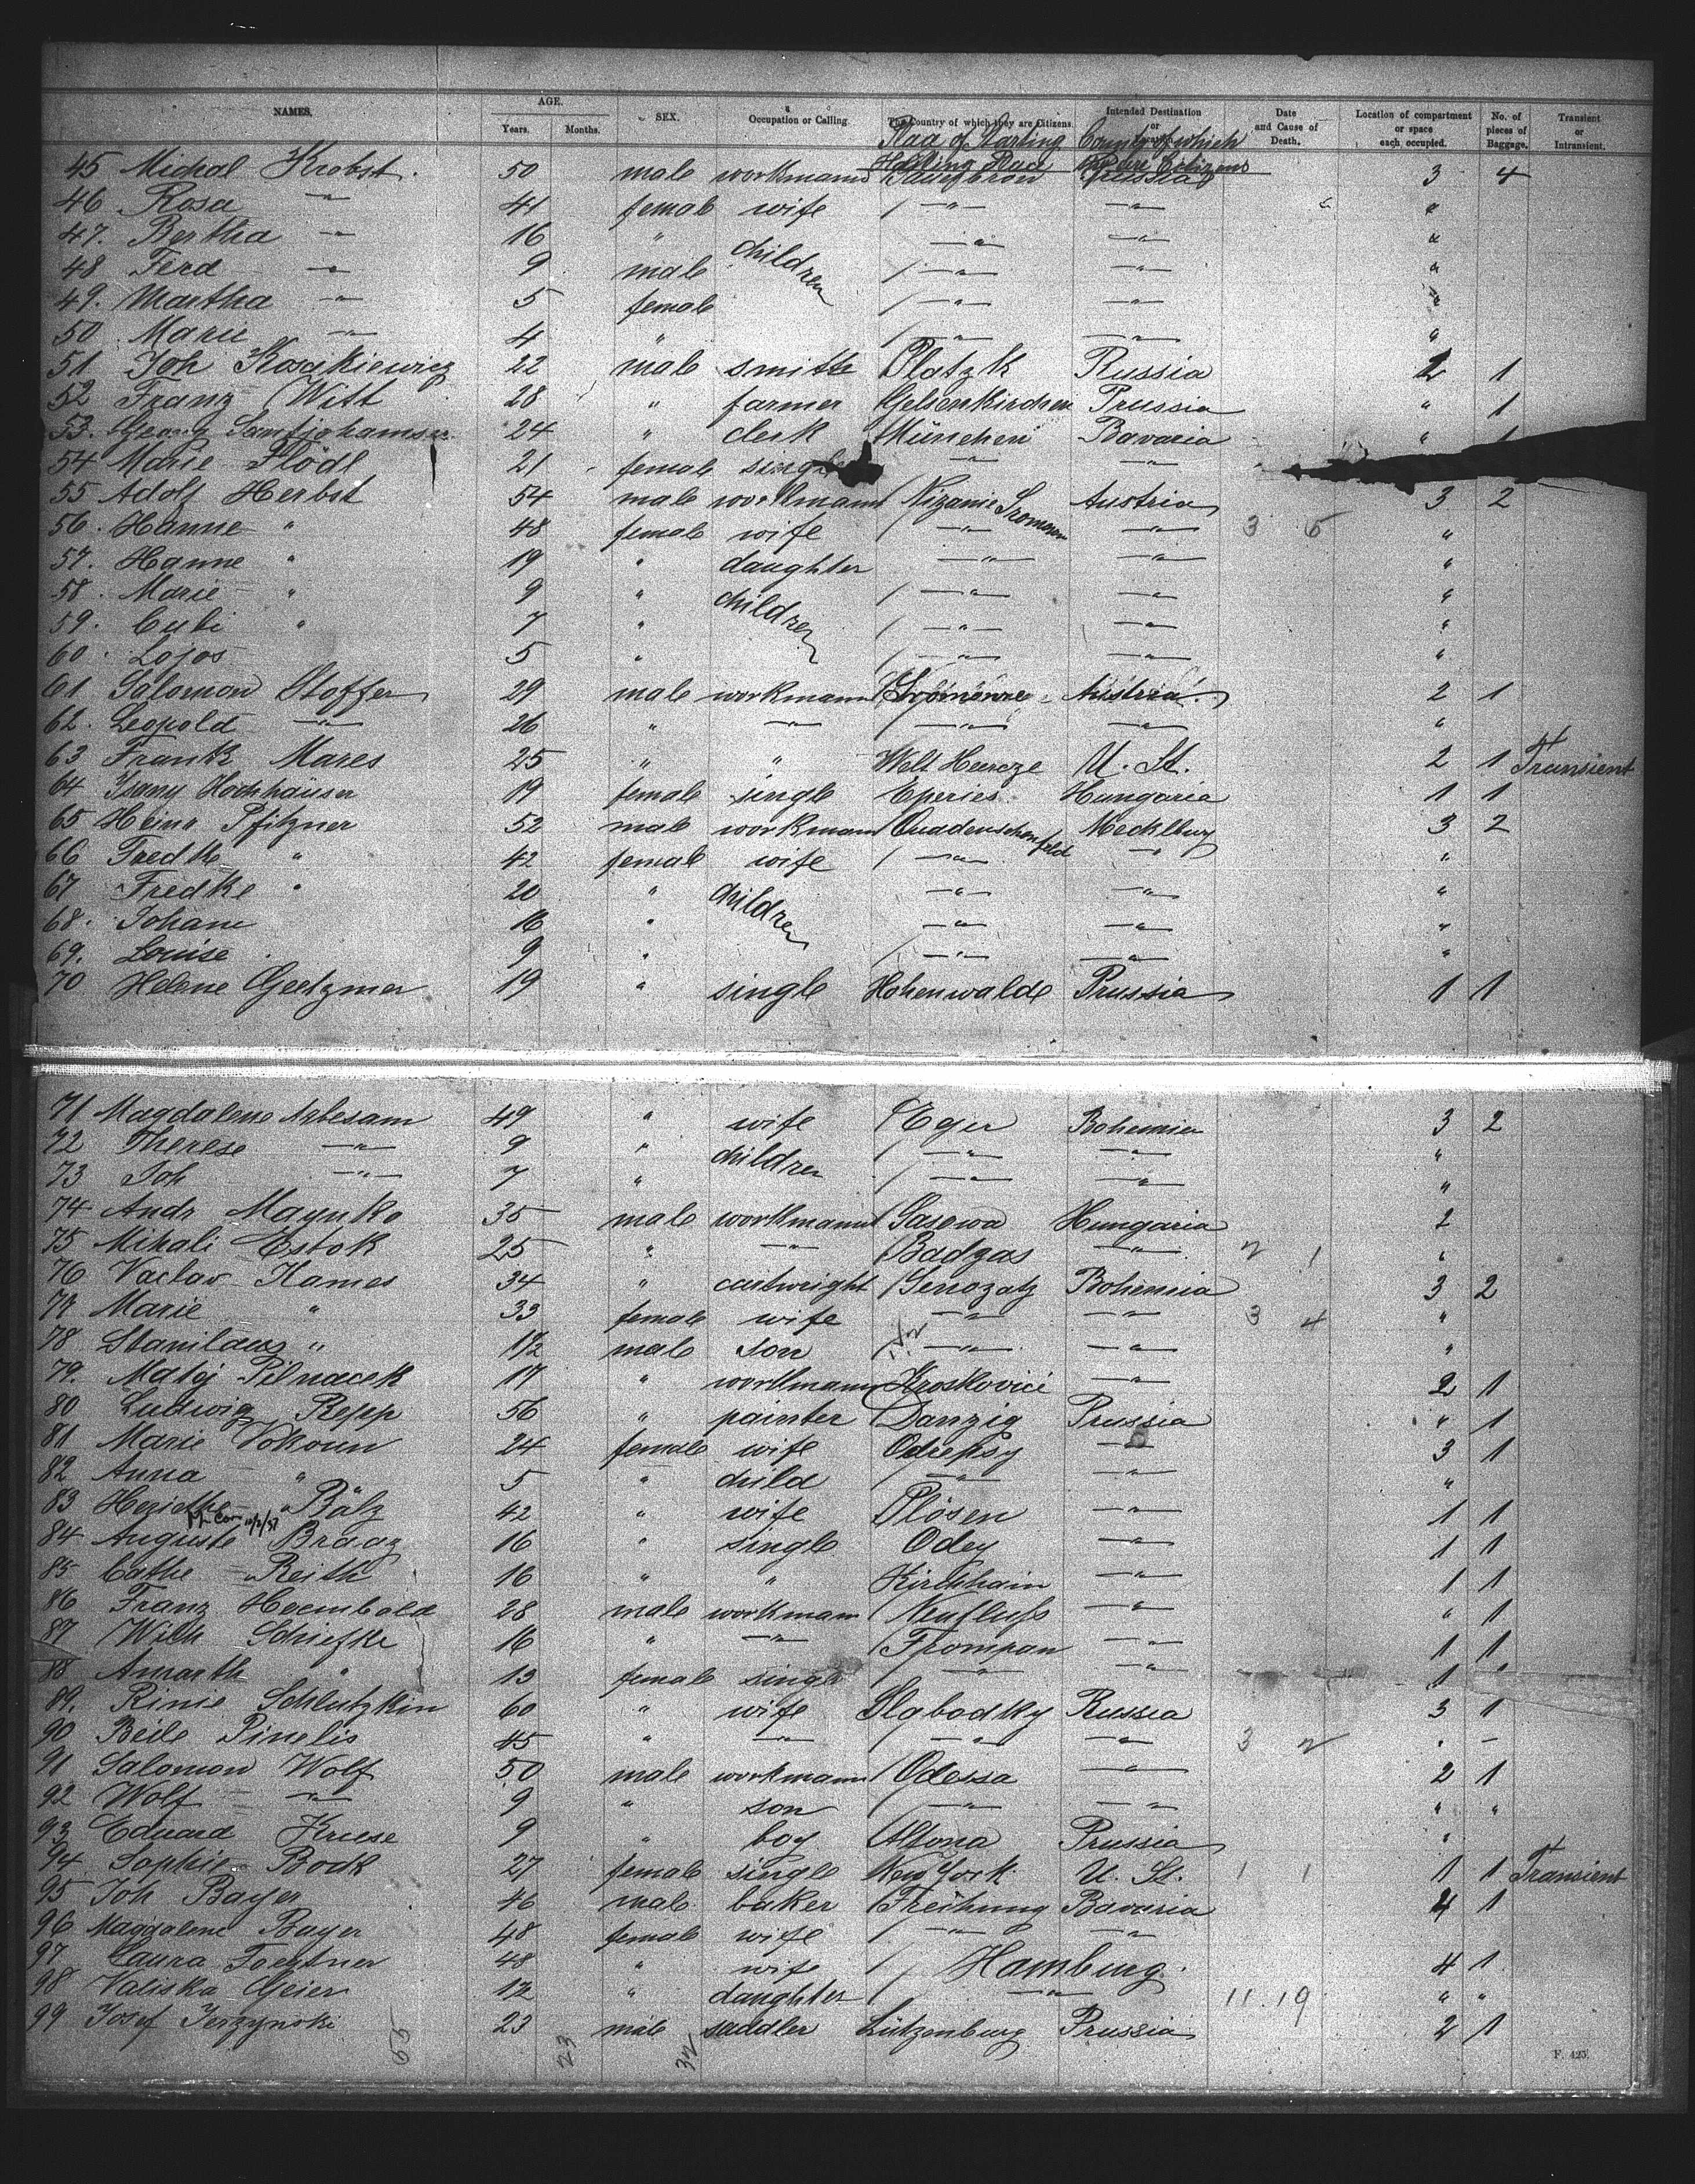 NAMES. AGE. Years. Months. SEX. Occupation or Calling. The Country of which they are Citizens. Intended Destination or Date and Cause of Death. Location of compartment or space each occupied. No. of pieces of Baggage. Transient or Intransient.
of Starting Country of which
Citizens
45 Michal Krobst. 50 male workmann Prussia 3 4
46 Rosa —"— 41 female wife —"— —"— "
47. Bertha —"— 16 " children —"— —"— "
48 Ferd —"— 9 male —"— —"— "
49. Martha —"— 5 female —"— —"— "
50 Marie —"— 4 " —"— —"— "
51 Joh Kosakiewicz 22 male smitte Plotzk Russia 2 1
52 Franz Witt 28 " farmer Gelsenkirchen Prussia " 1
53. Georg 24 " clerk München Bavaria "
54 Marie Flödl 21 female single —"— —"—
55 Adolf Herbst 54 male workmann Austria 3 2
56. Hanne " 48 female wife —"— —"— 3 5 "
57. Hanne " 19 " daughter —"— —"— "
58. Marie " 9 " children —"— —"— "
59. Cubi " 7 " —"— —"— "
60. Lojos 5 " —"— —"— "
61 Salomon Stoffer 29 male workmann Austria 2 1
62. Leopold —"— 26 " —"— —"— —"— "
63 Frank Mares 25 " " U. St. 2 1 Transient
64 Hochhäuser 19 female single Eperies Hungaria 1 1
65 Heinr Pfitzner 52 male workmann Quadenschenfeld Mecklburg 3 2
66 Fredke " 42 female wife —"— —"— "
67 Fredke " 20 " children —"— —"— "
68. Johann 16 " —"— —"— "
69. Louise 9 " —"— —"— "
70 Helene Goetzmer 19 " single Hohenwalde Prussia 1 1
71 Magdalene Arbesam 49 " wife Eger Bohemia 3 2
72 Therese —"— 9 " children —"— —"— "
73 Joh —"— 7 " —"— —"— "
74 Andr Maynko 35 male workmann Sasowa Hungaria 2
75 Mihali Estok 25 " —"— Badgas —"— 2 1 "
76 Vaclav Kames 34 " cartwright Senozatz Bohemia 3 2
77 Marie " 33 female wife —"— —"— 3 4 "
78 Stanilaus " 1½ male son —"— —"— "
79. Matej Pilnacek 17 " workmann Kroskovici —"— 2 1
80 Ludwig Repp 56 " painter Danzig Prussia " 1
81 Marie Vokoun 24 female wife —"— 3 1
82 Anna " 5 " child —"— —"— "
83 Bälz 42 " wife Plösen —"— 1 1
84 Auguste Braaz 16 " single Odey —"— 1 1
85 Cathe Reith 16 " " Kirchhain —"— 1 1
86 Franz Heembold 28 male workmann Neufluss —"— " 1
87 Wilh Schiefke 16 " —"— Frompan —"— 1 1
88 " 13 female single —"— —"— 1
89. Rinie Schlutzkin 60 " wife Slabodky Russia 3 1
90 Beile Pinelis 45 " —"— —"— —"— 3 2 " —
91 Salomon Wolf 50 male workmann Odessa —"— 2 1
92 Wolf —"— 9 " son —"— —"— " "
93 Eduard Kruse 9 " boy Altona Prussia "
94 Sophie Bock 27 female single New York U. St. 1 1 1 1 Transient
95 Joh Bayer 46 male baker Freihung Bavaria 4 1
96 Magdalene Bayer 48 female wife —"— —"—
97 Laura Foertner 48 " wife Hamburg. 4 1
98 Valiska Geier 12 " daughter —"— 11. 19 " "
99 Josef Jerzynski 23 male saddler Lützenburg Prussia 2 1
65 23 32
F. 425